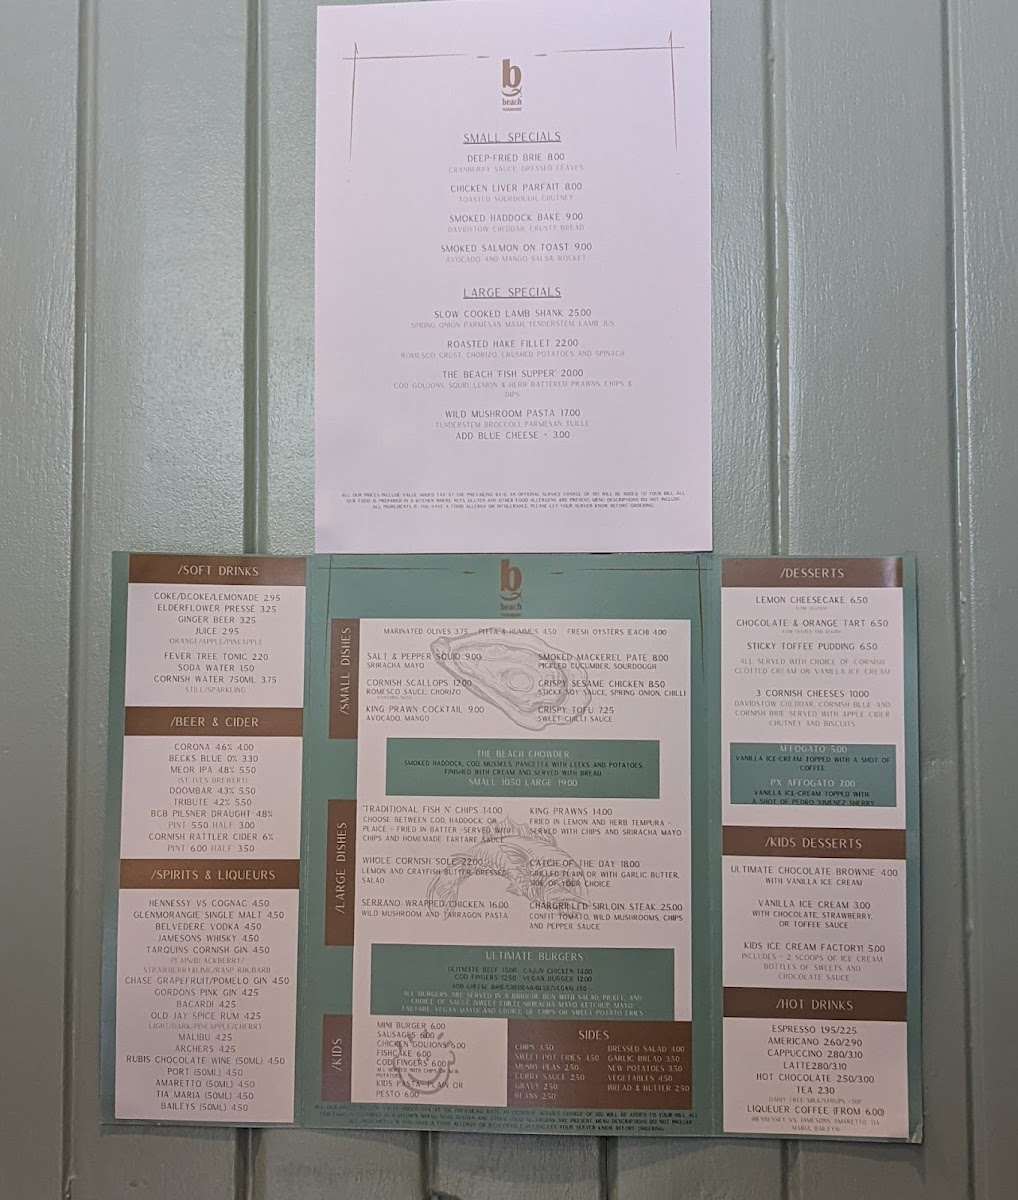 b
beach
restaurant
SMALL SPECIALS
DEEP-FRIED BRIE 8.00
CRANBERRY SAUCE, DRESSED LEAVES
CHICKEN LIVER PARFAIT 8.00
TOASTED SOURDOUGH, CHUTNEY
SMOKED HADDOCK BAKE 9.00
DAVIDSTOW CHEDDAR, CRUSTY BREAD
SMOKED SALMON ON TOAST 9.00
AVOCADO AND MANGO SALSA, ROCKET
LARGE SPECIALS
SLOW COOKED LAMB SHANK 25.00
SPRING ONION PARMESAN MASH, TENDERSTEM, LAMB JUS
ROASTED HAKE FILLET 22.00
ROMESCO CRUST, CHORIZO, CRUSHED POTATOES AND SPINACH
THE BEACH 'FISH SUPPER' 20.00
COD GOUJONS, SQUID, LEMON & HERB BATTERED PRAWNS, CHIPS &
DIPS
WILD MUSHROOM PASTA 17.00
TENDERSTEM BROCCOLI, PARMESAN TUILLE
ADD BLUE CHEESE + 3.00
ALL OUR PRICES INCLUDE VALUE ADDED TAX AT THE PREVAILING RATE. AN OPTIONAL SERVICE CHARGE OF 10% WILL BE ADDED TO YOUR BILL. ALL
OUR FOOD IS PREPARED IN A KITCHEN WHERE NUTS, GLUTEN AND OTHER FOOD ALLERGENS ARE PRESENT. MENU DESCRIPTIONS DO NOT INCLUDE
ALL INGREDIENTS. IF YOU HAVE A FOOD ALLERGY OR INTOLERANCE, PLEASE LET YOUR SERVER KNOW BEFORE ORDERING.
/SOFT DRINKS
COKE/D.COKE/LEMONADE 2.95
ELDERFLOWER PRESSÉ 3.25
GINGER BEER 3.25
JUICE 2.95
ORANGE/APPLE/PINEAPPLE
FEVER TREE TONIC 2.20
SODA WATER 1.50
CORNISH WATER 750ML 3.75
STILL/SPARKLING
/BEER & CIDER
CORONA 4.6% 4.00
BECKS BLUE 0% 3.30
MEOR IPA 4.8% 5.50
(ST. IVES BREWERY)
DOOMBAR 4.3% 5.50
TRIBUTE 4.2% 5.50
BCB PILSNER DRAUGHT 4.8%
PINT 5.50 HALF 3.00
CORNISH RATTLER CIDER 6%
PINT 6.00 HALF 3.50
/SPIRITS & LIQUEURS
HENNESSY VS COGNAC 4.50
GLENMORANGIE SINGLE MALT 4.50
BELVEDERE VODKA 4.50
JAMESONS WHISKY 4.50
TARQUINS CORNISH GIN 4.50
PLAIN/BLACKBERRY/
STRAWBERRY&LIME/RASP. RHUBARB
CHASE GRAPEFRUIT/POMELO GIN 4.50
GORDONS PINK GIN 4.25
BACARDI 4.25
OLD JAY SPICE RUM 4.25
LIGHT/DARK/PINEAPPLE/CHERRY
MALIBU 4.25
ARCHERS 4.25
RUBIS CHOCOLATE WINE (50ML) 4.50
PORT (50ML) 4.50
AMARETTO (50ML) 4.50
TIA MARIA (50ML) 4.50
BAILEYS (50ML) 4.50
b
beach
restaurant
/SMALL DISHES
MARINATED OLIVES 3.75 PITTA & HUMMUS 4.50 FRESH OYSTERS (EACH) 4.00
SALT & PEPPER SQUID 9.00
SRIRACHA MAYO
CORNISH SCALLOPS 12.00
ROMESCO SAUCE, CHORIZO
KING PRAWN COCKTAIL 9.00
AVOCADO, MANGO
SMOKED MACKEREL PATE 8.00
PICKLED CUCUMBER, SOURDOUGH
CRISPY SESAME CHICKEN 8.50
STICKY SOY SAUCE, SPRING ONION, CHILLI
CRISPY TOFU 7.25
SWEET CHILLI SAUCE
THE BEACH CHOWDER
SMOKED HADDOCK, COD, MUSSELS, PANCETTA WITH LEEKS AND POTATOES,
FINISHED WITH CREAM AND SERVED WITH BREAD
SMALL 10.50 LARGE 19.00
/LARGE DISHES
'TRADITIONAL FISH N' CHIPS 14.00
CHOOSE BETWEEN COD, HADDOCK, OR
PLAICE - FRIED IN BATTER -SERVED WITH
CHIPS AND HOMEMADE TARTARE SAUCE
WHOLE CORNISH SOLE 22.00
LEMON AND CRAYFISH BUTTER, DRESSED
SALAD
SERRANO-WRAPPED CHICKEN 16.00
WILD MUSHROOM AND TARRAGON PASTA
KING PRAWNS 14.00
FRIED IN LEMON AND HERB TEMPURA -
SERVED WITH CHIPS AND SRIRACHA MAYO
CATCH OF THE DAY 18.00
GRILLED PLAIN OR WITH GARLIC BUTTER,
SIDE OF YOUR CHOICE
CHARGRILLED SIRLOIN STEAK 25.00
CONFIT TOMATO, WILD MUSHROOMS, CHIPS
AND PEPPER SAUCE
ULTIMATE BURGERS
ULTIMATE BEEF 15.00 CAJUN CHICKEN 14.00
COD FINGERS 12.50 VEGAN BURGER 12.00
ADD CHEESE (BRIE/CHEDDAR/BLUE/VEGAN) 1.50
ALL BURGERS ARE SERVED IN A BRIOCHE BUN WITH SALAD, PICKLE, AND
CHOICE OF SAUCE (SWEET CHILLI, SRIRACHA MAYO, KETCHUP, MAYO
TARTARE, VEGAN MAYO) AND CHOICE OF CHIPS OR SWEET POTATO FRIES
/KIDS
MINI BURGER 6.00
SAUSAGES 6.00
CHICKEN GOUJONS 6.00
FISHCAKE 6.00
COD FINGERS 6.00
KIDS PASTA- PLAIN OR
PESTO 6.00
SIDES
CHIPS 3.50
SWEET POT FRIES 4.50
MUSHY PEAS 2.50
CURRY SAUCE 2.50
GRAVY 2.50
BEANS 2.50
DRESSED SALAD 4.00
GARLIC BREAD 3.50
NEW POTATOES 3.50
VEGETABLES 4.50
BREAD & BUTTER 2.50
/DESSERTS
LEMON CHEESECAKE 6.50
CHOCOLATE & ORANGE TART 6.50
STICKY TOFFEE PUDDING 6.50
ALL SERVED WITH CHOICE OF CORNISH
CLOTTED CREAM OR VANILLA ICE CREAM
3 CORNISH CHEESES 10.00
DAVIDSTOW CHEDDAR, CORNISH BLUE AND
CORNISH BRIE SERVED WITH APPLE CIDER
CHUTNEY AND BISCUITS
AFFOGATO 5.00
VANILLA ICE-CREAM TOPPED WITH A SHOT OF
COFFEE
PX AFFOGATO 7.00
VANILLA ICE-CREAM TOPPED WITH
A SHOT OF PEDRO XIMENEZ SHERRY
/KIDS DESSERTS
ULTIMATE CHOCOLATE BROWNIE 4.00
WITH VANILLA ICE CREAM
VANILLA ICE CREAM 3.00
WITH CHOCOLATE, STRAWBERRY,
OR TOFFEE SAUCE
KIDS ICE CREAM FACTORY! 5.00
INCLUDES - 2 SCOOPS OF ICE CREAM,
BOTTLES OF SWEETS AND
CHOCOLATE SAUCE
/HOT DRINKS
ESPRESSO 1.95/2.25
AMERICANO 2.60/2.90
CAPPUCCINO 2.80/3.10
LATTE2.80/3.10
HOT CHOCOLATE 2.50/3.00
TEA 2.30
LIQUEUER COFFEE (FROM 6.00)
(HENNESSEY VS, JAMESONS, AMARETTO, TIA
MARIA, BAILEYS)